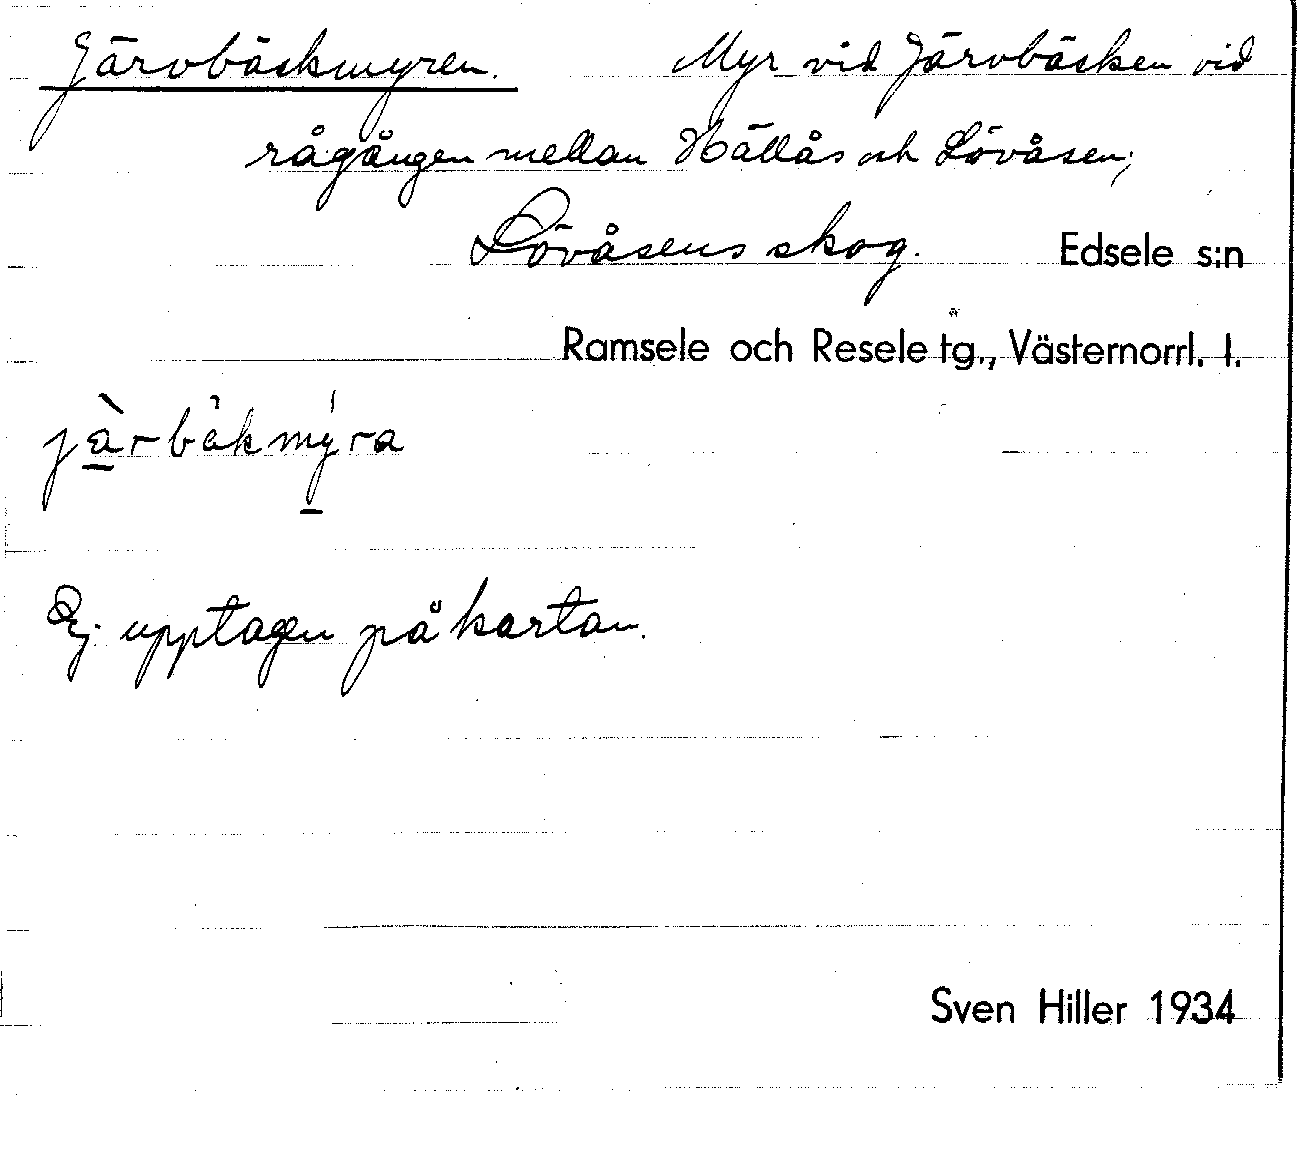 Järvbäckmyren. Myr vid Järvbäcken vid
rågången mellan Hällås och Lövåsen;
Lövåsens skog. Edsele s:n
Ramsele och Resele tg., Västernorrl. l.
jàrbäkmýra
Ej upptagen på kartan.
Sven Hiller 1934